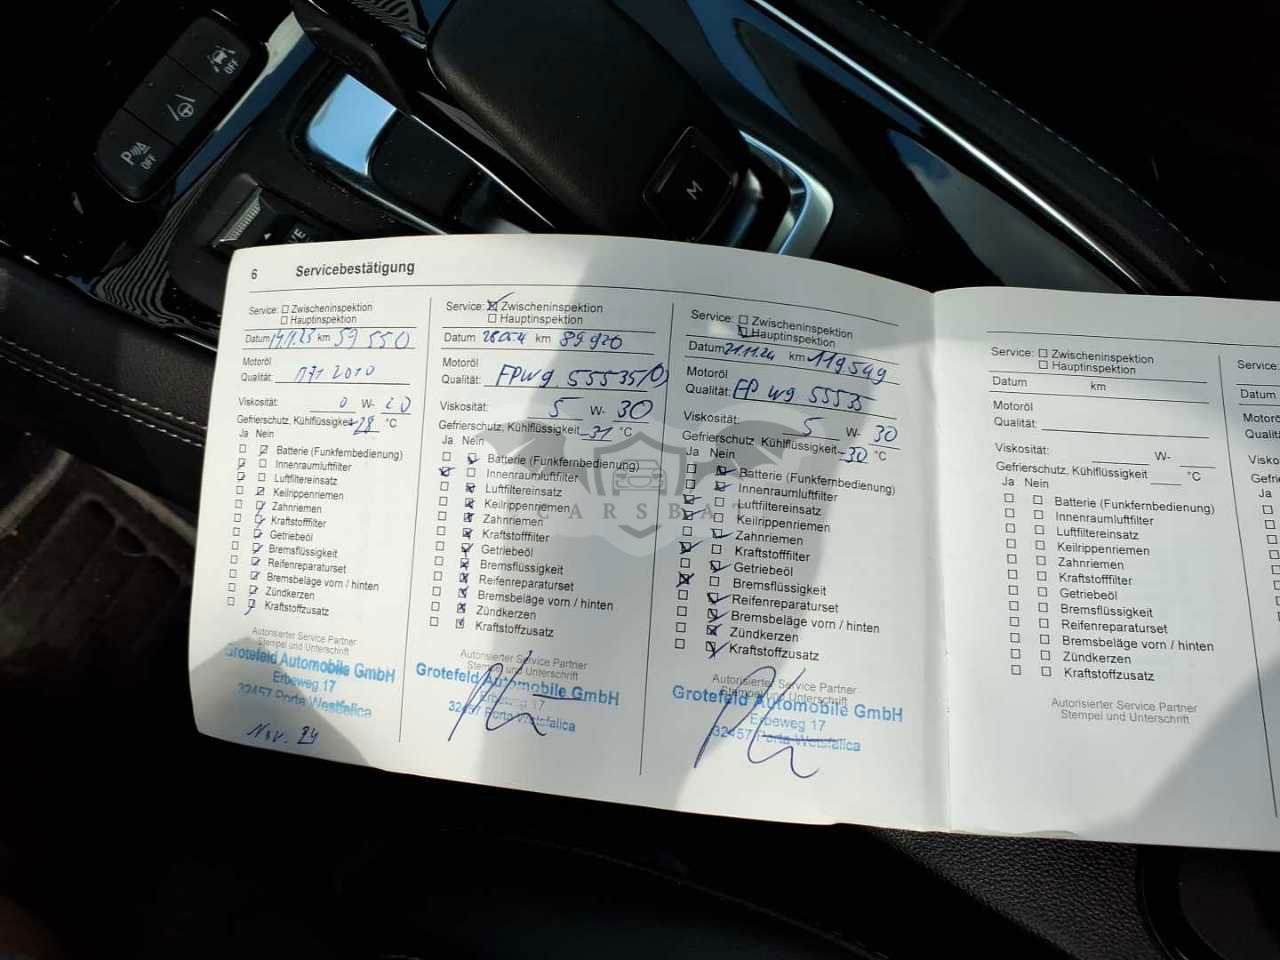 OFF
P
OFF
M
6 Servicebestätigung
Service: Zwischeninspektion
Hauptinspektion
Datum km 59 550
Motoröl
Qualität: 2010
Viskosität: 0 W- 20
Gefrierschutz, Kühlflüssigkeit -28 °C
Ja Nein
Batterie (Funkfernbedienung)
Innenraumluftfilter
Luftfiltereinsatz
Keilrippenriemen
Zahnriemen
Kraftstofffilter
Getriebeöl
Bremsflüssigkeit
Reifenreparaturset
Bremsbeläge vorn / hinten
Zündkerzen
Kraftstoffzusatz
Autorisierter Service Partner
Stempel und Unterschrift
Grotefeld Automobile GmbH
Erbeweg 17
32457 Porta Westfalica
Nov. 24
Service: Zwischeninspektion
Hauptinspektion
Datum km 89 920
Motoröl
Qualität:
Viskosität: 5 W- 30
Gefrierschutz, Kühlflüssigkeit -31 °C
Ja Nein
Batterie (Funkfernbedienung)
Innenraumluftfilter
Luftfiltereinsatz
Keilrippenriemen
Zahnriemen
Kraftstofffilter
Getriebeöl
Bremsflüssigkeit
Reifenreparaturset
Bremsbeläge vorn / hinten
Zündkerzen
Kraftstoffzusatz
Autorisierter Service Partner
Stempel und Unterschrift
Grotefeld Automobile GmbH
Erbeweg 17
32457 Porta Westfalica
Service: Zwischeninspektion
Hauptinspektion
Datum 21.11.24 km 119.549
Motoröl
Qualität: 55535
Viskosität: 5 W- 30
Gefrierschutz, Kühlflüssigkeit -30 °C
Ja Nein
Batterie (Funkfernbedienung)
Innenraumluftfilter
Luftfiltereinsatz
Keilrippenriemen
Zahnriemen
Kraftstofffilter
Getriebeöl
Bremsflüssigkeit
Reifenreparaturset
Bremsbeläge vorn / hinten
Zündkerzen
Kraftstoffzusatz
Autorisierter Service Partner
Stempel und Unterschrift
Grotefeld Automobile GmbH
Erbeweg 17
32457 Porta Westfalica
CARSBA
Service: Zwischeninspektion
Hauptinspektion
Datum km
Motoröl
Qualität:
Viskosität: W-
Gefrierschutz, Kühlflüssigkeit °C
Ja Nein
Batterie (Funkfernbedienung)
Innenraumluftfilter
Luftfiltereinsatz
Keilrippenriemen
Zahnriemen
Kraftstofffilter
Getriebeöl
Bremsflüssigkeit
Reifenreparaturset
Bremsbeläge vorn / hinten
Zündkerzen
Kraftstoffzusatz
Autorisierter Service Partner
Stempel und Unterschrift
Service:
Datum
Ja